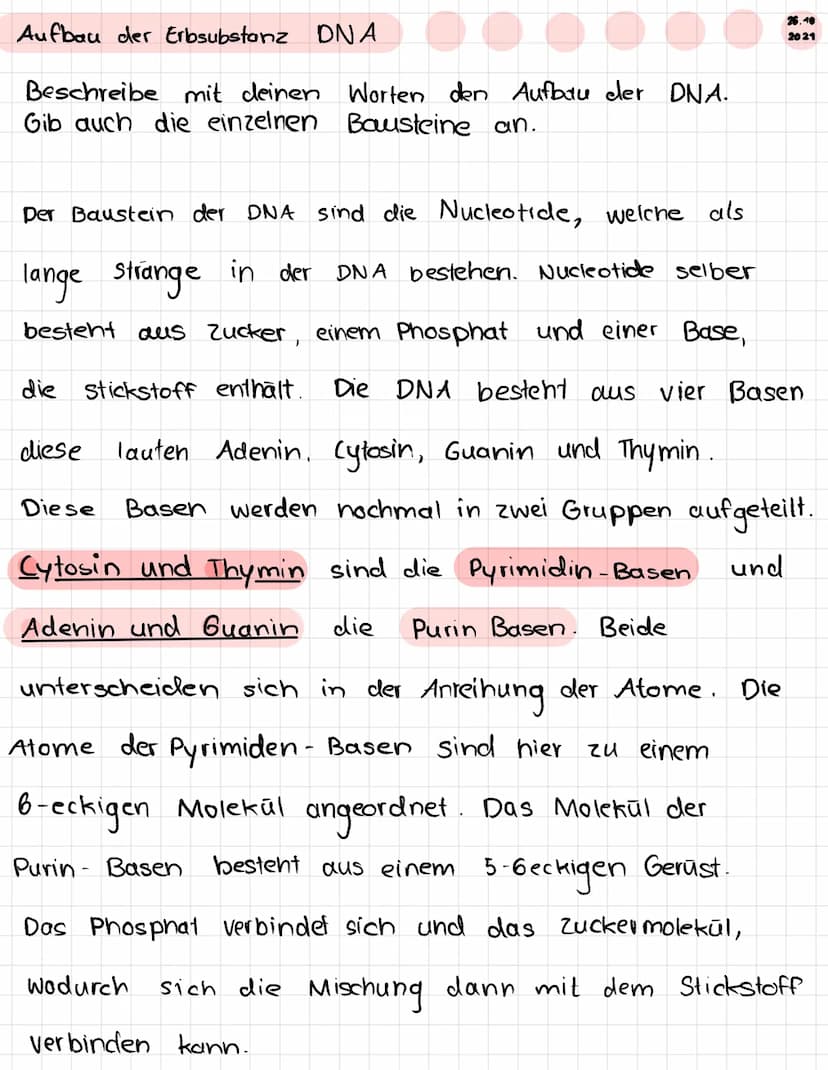 Aufbau der Erbsubstanz DNA
26.10
2021
Beschreibe mit deinen Worten den Aufbau der DNA.
Gib auch die einzelnen Bausteine an.
Der Baustein der DNA sind die Nucleotide, welche als
lange Stränge in der DNA bestehen. Nucleotide selber
besteht aus Zucker, einem Phosphat und einer Base,
die Stickstoff enthält. Die DNA besteht aus vier Basen
diese lauten Adenin, Cytosin, Guanin und Thymin.
Diese Basen werden nochmal in zwei Gruppen aufgeteilt.
Cytosin und Thymin sind die Pyrimidin-Basen und
Adenin und Guanin die Purin Basen. Beide
unterscheiden sich in der Anreihung der Atome. Die
Atome der Pyrimiden-Basen sind hier zu einem
6-eckigen Molekül angeordnet. Das Molekül der
Purin-Basen besteht aus einem 5-6eckigen Gerüst.
Das Phosphat verbindet sich und das Zuckermolekül,
wodurch sich die Mischung dann mit dem Stickstoff
verbinden kann.